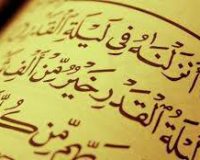 أَنزَلْنَٰهُ فِى لَيْلَةِ ٱلْقَدْرِ
لَيْلَةُ ٱلْقَدْرِ خَيْرٌ مِّنْ أَلْفِ
مِّن كُلِّ